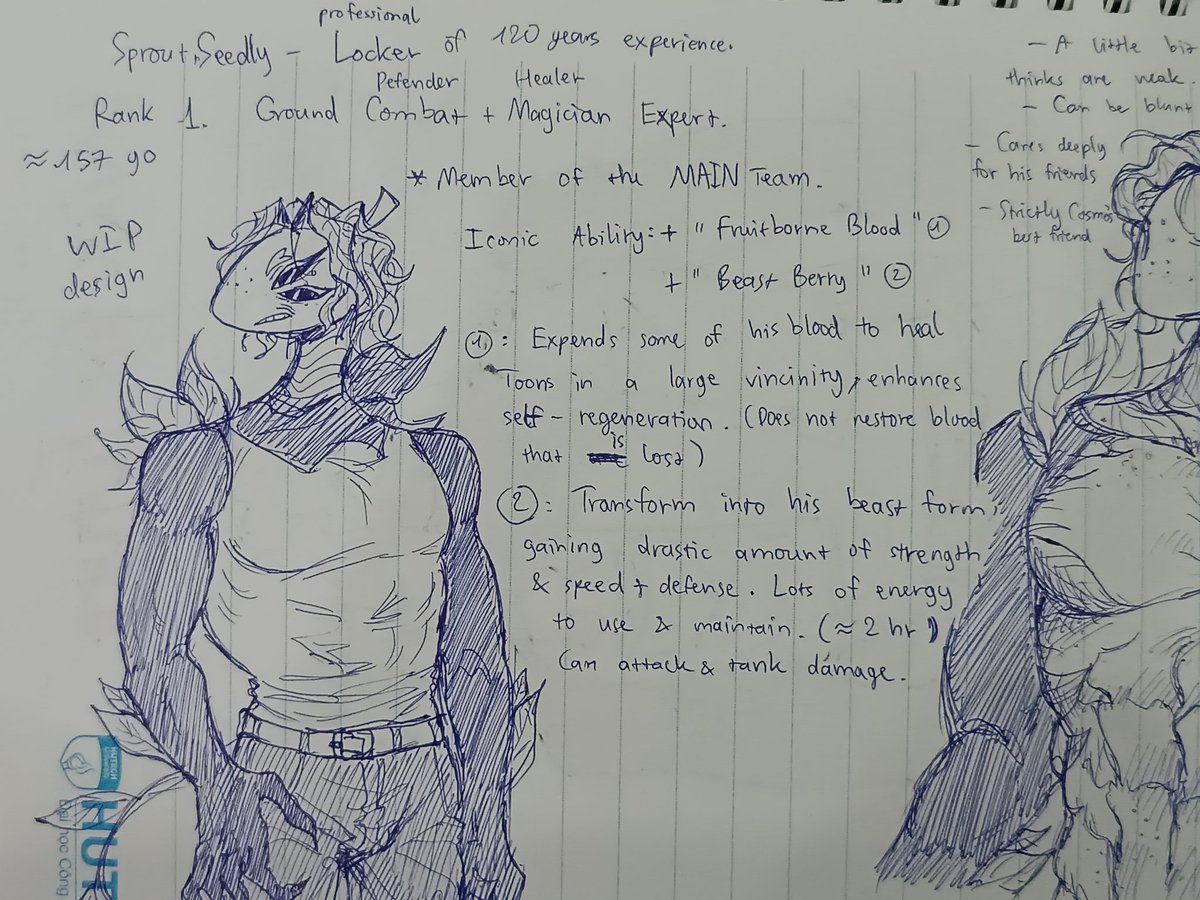 professional
Sprout Seedly - Locker of 120 years experience.
Defender Healer
Rank 1. Ground Combat + Magician Expert.
≈157 yo
* Member of the MAIN Team.
WIP
design
Iconic Ability: + "Fruitborne Blood" ①
+ "Beast Berry" ②
①: Expends some of his blood to heal
Toons in a large vincinity, enhances
self-regeneration. (Does not restore blood
that is lost)
②: Transform into his beast form,
gaining drastic amount of strength
& speed + defense. Lots of energy
to use & maintain. (≈2 hr)
Can attack & tank damage.
- A little bit
thinks are weak.
- Can be blunt
- Cares deeply
for his friends
- Strictly Cosmo's
best friend
HUTECH
HUT
Đại học Công